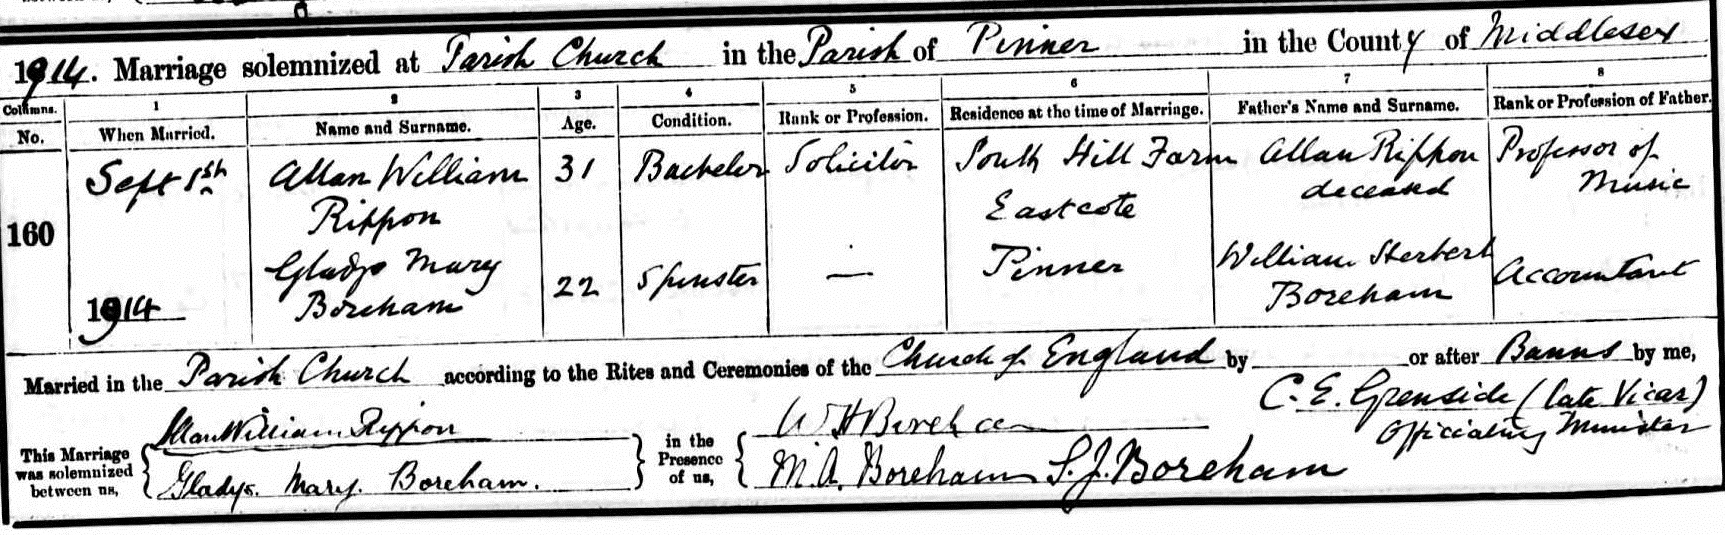 1914. Marriage solemnized at Parish Church in the Parish of Pinner in the County of Middlesex
Columns. 1 2 3 4 5 6 7 8
No. When Married. Name and Surname. Age. Condition. Rank or Profession. Residence at the time of Marriage. Father's Name and Surname. Rank or Profession of Father.
160
Sept 1st
1914
Allan William
Rippon
31
Bachelor
Solicitor
South Hill Farm
Eastcote
Allan Rippon
deceased
Professor of
Music
Gladys Mary
Boreham
22
Spinster
—
Pinner
William Herbert
Boreham
Accountant
Married in the Parish Church according to the Rites and Ceremonies of the Church of England by or after Banns by me,
C. E. Grenside (late Vicar)
Officiating Minister
This Marriage
was solemnized
between us,
Allan William Rippon
Gladys. Mary. Boreham.
in the
Presence
of us,
W H Boreham
M. A. Boreham S. J. Boreham